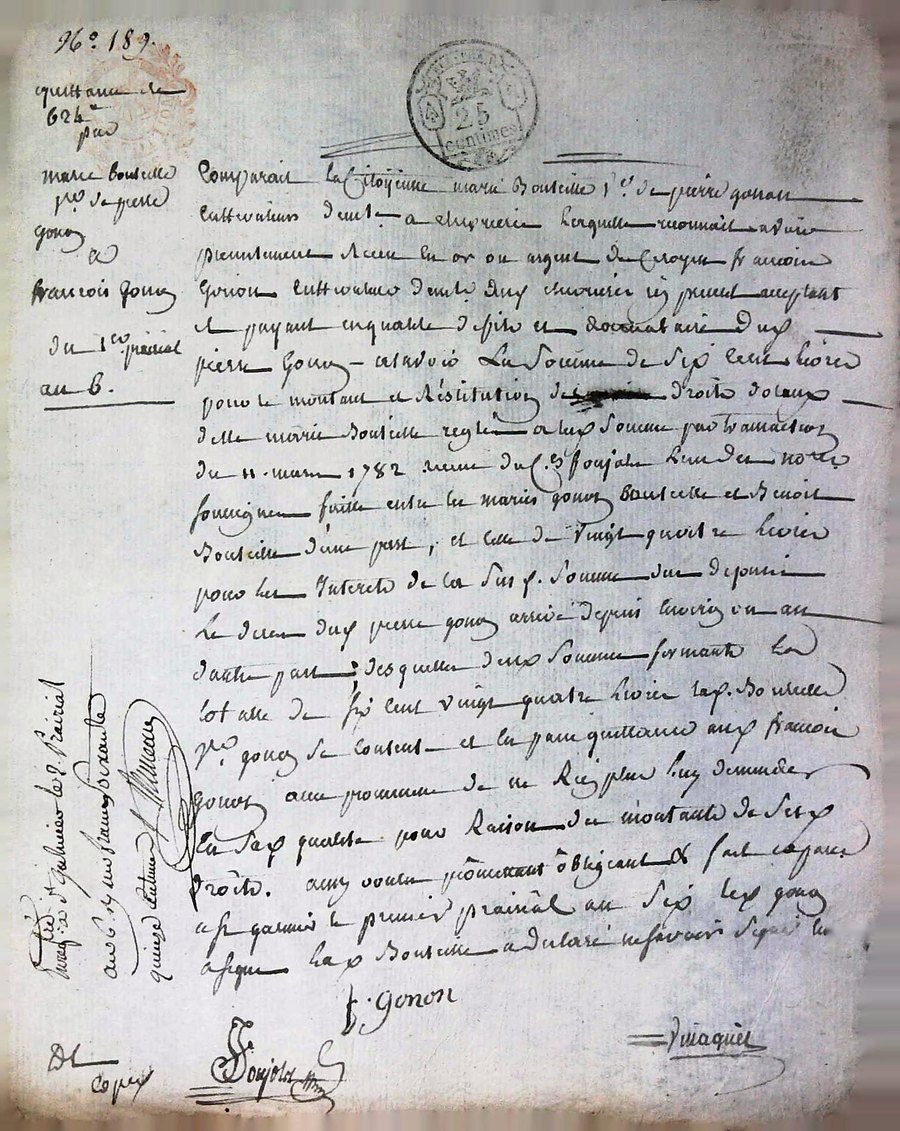 N° 189.
quittance de
624"
par
marie bouteille
v.e de pierre
gonon
a
françois Gonon
du 1er prairial
an 6.
25
centimes
Comparait la Citoyenne marie Bouteille v.e de pierre gonon
Cultivateur demt a laquelle reconnait avoir
presentement Receu en or ou argent du Citoyen francois
Gonon Cultivateur demt present acceptant
et payant en qualité d'heritier et donnataire dud
pierre Gonon Scavoir La Somme de Six Cent livres
pour le montant et Réstitution des droits dotaux
de lad marie Bouteille reglés a lad Somme par transaction
du 11 mars 1782 receue du C.en Joujoln lun des notres
soussignes faitte entre les mariés gonon Bouteille et Benoit
Bouteille d'une part, et celle de vingt quattre livres
pour les Interets de la Susd. Somme dus depuis
Le deces dud pierre gonon arrivé depuis Environ un an
d'autre part; desquelles deux Sommes formants La
totalle de six Cent vingt quatre livres lad. Bouteille
v.e gonon Se Contente et en passe quittance aud francois
gonon avec promesse de ne Rien plus luy demander
En Sad qualité pour Raison du montant de Sesd
Droits. ainsy voulu promettant obligeant & fait et passé
a St galmier le premier prairial an Six led gonon
a signé Lad Bouteille a déclaré ne scavoir Signé
f. gonon
Joujoln
Vinaquet
Enregistré a St Galmier le 2 Prairial
an 6. un franc soixante
quinze centimes